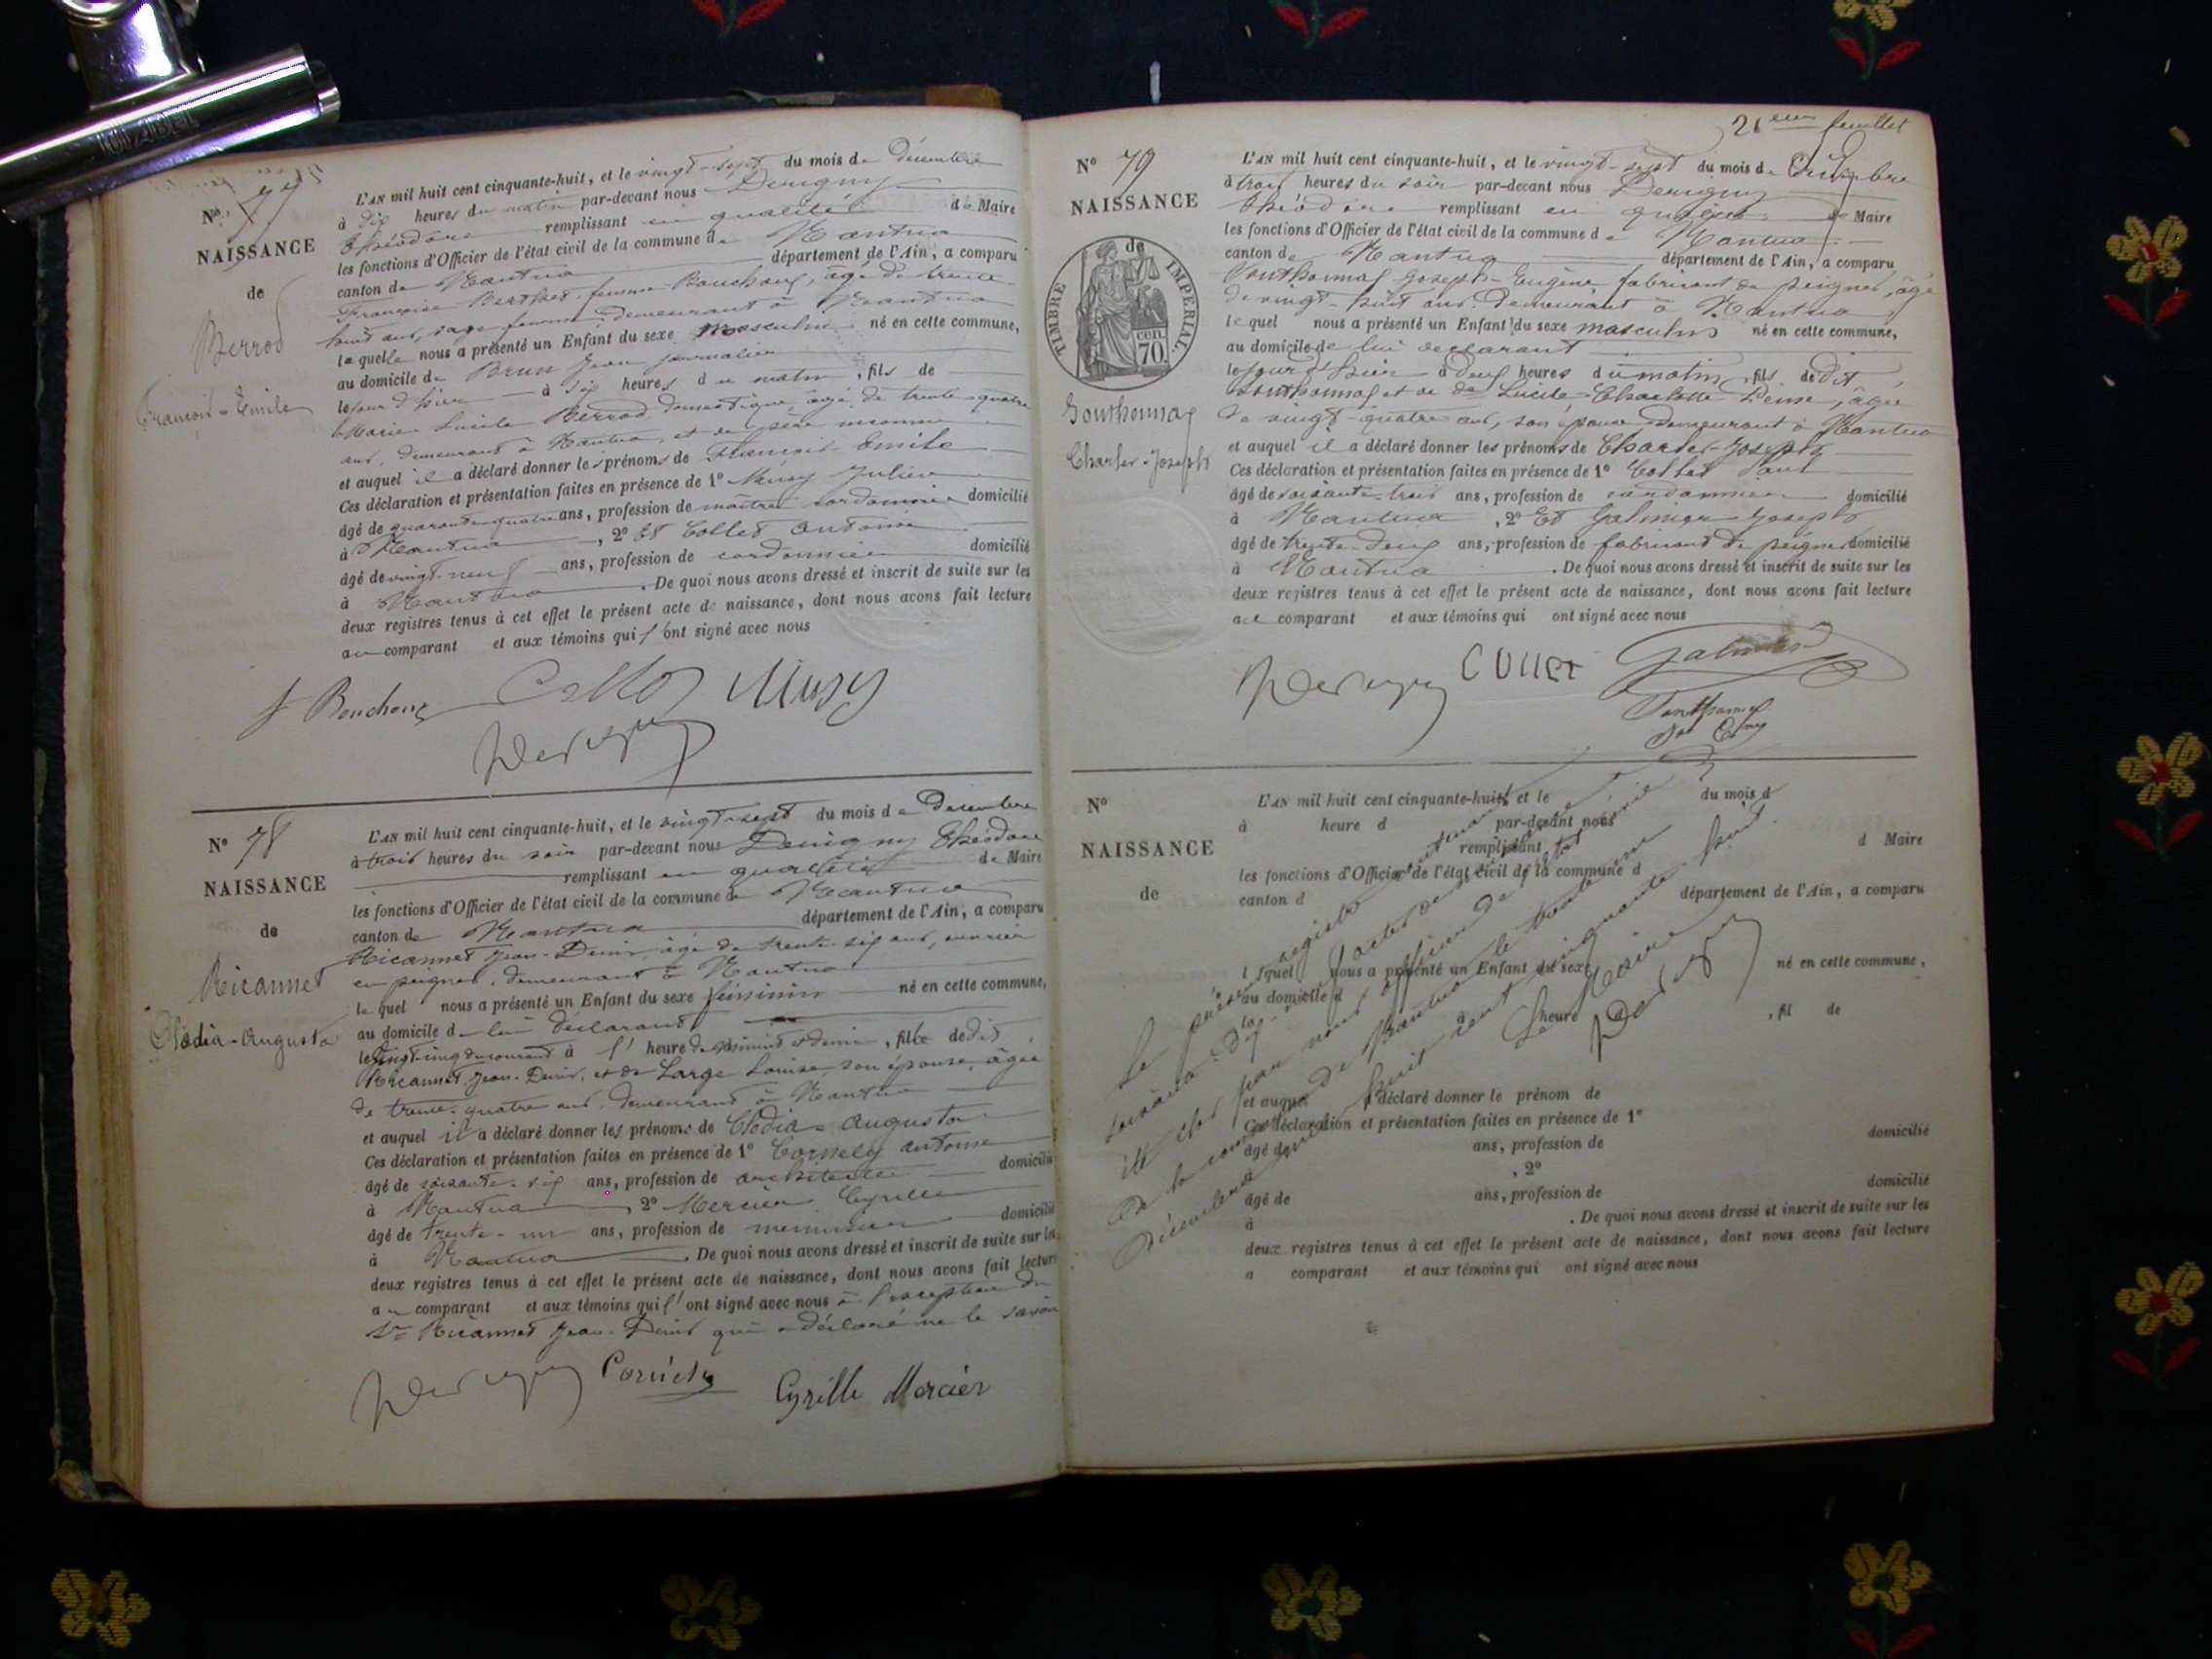 N° 77
NAISSANCE
de
Berrod
François-Emile
L'AN mil huit cent cinquante-huit, et le vingt-sept du mois de Décembre
à dix heures du matin par-devant nous Derigny
Théodore remplissant en qualité de Maire
les fonctions d'Officier de l'état civil de la commune de Nantua
canton de Nantua département de l'Ain, a comparu
Françoise Berthet, femme Bouchoux, âgée de trente
huit ans, sage femme, demeurant à Nantua
laquelle nous a présenté un Enfant du sexe masculin né en cette commune,
au domicile de Brun Jean journalier
le jour d'hier à six heures du matin, fils de
Marie Lucile Berrod domestique, âgée de trente-quatre
ans, demeurant à Nantua, et de père inconnu
et auquel il a déclaré donner les prénoms de François-Emile
Ces déclaration et présentation faites en présence de 1° Musy Julien
âgé de quarante-quatre ans, profession de maître cordonnier domicilié
à Nantua, 2° Et Collet Antoine
âgé de vingt-neuf ans, profession de cordonnier domicilié
à Nantua. De quoi nous avons dressé et inscrit de suite sur les
deux registres tenus à cet effet le présent acte de naissance, dont nous avons fait lecture
au comparant et aux témoins qui ont signé avec nous
f Bouchoux Collet Musy
Derigny
N° 78
NAISSANCE
de
Ricannet
Clodia-Augusta
L'AN mil huit cent cinquante-huit, et le vingt-sept du mois de Décembre
à trois heures du soir par-devant nous Derigny Théodore
remplissant en qualité de Maire
les fonctions d'Officier de l'état civil de la commune de Nantua
canton de Nantua département de l'Ain, a comparu
Ricannet Jean-Denis, âgé de trente-six ans, ouvrier
en peignes, demeurant à Nantua
lequel nous a présenté un Enfant du sexe féminin né en cette commune,
au domicile de lui déclarant
le vingt-cinq du courant à l'heure de minuit et demie, fille de dit
Ricannet Jean-Denis, et de Large Louise son épouse, âgée
de trente-quatre ans, demeurant à Nantua
et auquel il a déclaré donner les prénoms de Clodia-Augusta
Ces déclaration et présentation faites en présence de 1° Cornely Antoine
âgé de soixante-six ans, profession de architecte domicilié
à Nantua, 2° Mercier Cyrille
âgé de trente-un ans, profession de menuisier domicilié
à Nantua. De quoi nous avons dressé et inscrit de suite sur les
deux registres tenus à cet effet le présent acte de naissance, dont nous avons fait lecture
au comparant et aux témoins qui ont signé avec nous à l'exception du
Sr Ricannet Jean-Denis qui a déclaré ne le savoir
Derigny Cornely Cyrille Mercier
21eme feuillet
N° 79
NAISSANCE
de
TIMBRE IMPERIAL.
70 cen
Gonthonnax
Charles-Joseph
L'AN mil huit cent cinquante-huit, et le vingt-sept du mois de Décembre
à trois heures du soir par-devant nous Derigny
Théodore remplissant en qualité de Maire
les fonctions d'Officier de l'état civil de la commune de Nantua
canton de Nantua département de l'Ain, a comparu
Joseph-Eugène fabricant de peignes, âgé
de vingt-huit ans demeurant à Nantua
lequel nous a présenté un Enfant du sexe masculin né en cette commune,
au domicile de lui déclarant
le jour d'hier à deux heures du matin, fils de dit
et de Lucile-Charlotte âgée
de vingt-quatre ans, son épouse demeurant à Nantua
et auquel il a déclaré donner les prénoms de Charles-Joseph
Ces déclaration et présentation faites en présence de 1° Collet Paul
âgé de soixante-trois ans, profession de cordonnier domicilié
à Nantua, 2° Et Galmier Joseph
âgé de trente-deux ans, profession de fabricant de peignes domicilié
à Nantua. De quoi nous avons dressé et inscrit de suite sur les
deux registres tenus à cet effet le présent acte de naissance, dont nous avons fait lecture
au comparant et aux témoins qui ont signé avec nous
Derigny COLLET Galmier
N°
NAISSANCE
de
L'AN mil huit cent cinquante-huit, et le du mois d
à heure d par-devant nous
remplissant d Maire
les fonctions d'Officier de l'état civil de la commune d
canton d département de l'Ain, a comparu
l quel nous a présenté un Enfant du sexe né en cette commune,
au domicile d
le à heure d, fil de
et auquel a déclaré donner le prénom de
Ces déclaration et présentation faites en présence de 1°
âgé de ans, profession de domicilié
à , 2°
âgé de ans, profession de domicilié
à . De quoi nous avons dressé et inscrit de suite sur les
deux registres tenus à cet effet le présent acte de naissance, dont nous avons fait lecture
a comparant et aux témoins qui ont signé avec nous
Le présent registre contenant
soixante-dix-neuf actes de
été clos par nous officier de l'état civil
de la commune de Nantua le trente un
décembre mil huit cent cinquante huit.
Le Maire
Derigny